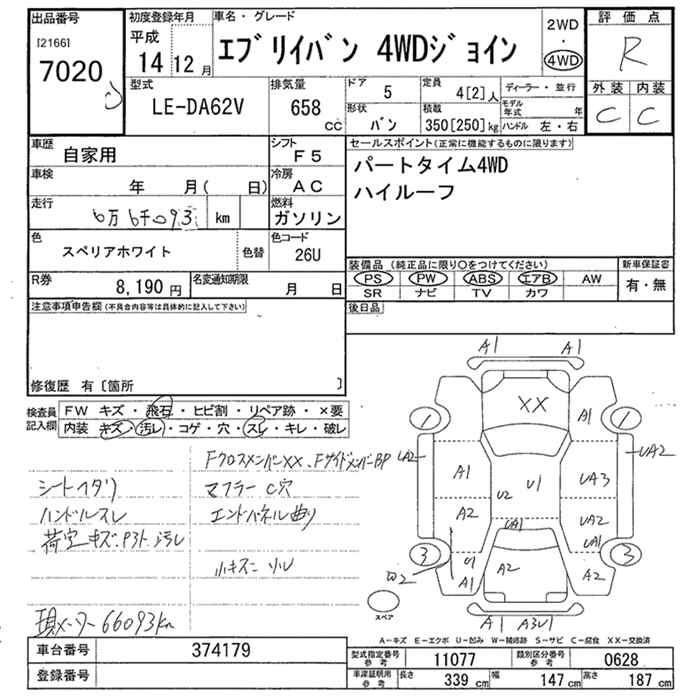 出品番号
[2166]
7020
初度登録年月
平成
14 12 月
車名・グレード
エブリイバン 4WDジョイン
2WD
・
4WD
評価点
R
外装 内装
C C
型式
LE-DA62V
排気量
658
cc
ドア
5
定員
4[2]人
ディーラー・並行
形状
バン
積載
350[250]kg
モデル年式 年
ハンドル 左・右
車歴
自家用
シフト
F5
車検
年 月( 日)
冷房
AC
走行
6万6千093 km
燃料
ガソリン
色
スペリアホワイト
色替
色コード
26U
R券
8,190 円
名変通知期限
月 日
セールスポイント(正常に機能するものに限ります)
パートタイム4WD
ハイルーフ
装備品 (純正品に限り〇をつけてください)
新車保証書
PS PW ABS エアB AW
SR ナビ TV カワ
有・無
後日品
注意事項申告欄(不具合内容等は具体的に記入して下さい)
修復歴 有〔箇所 〕
検査員
記入欄
FW キズ・飛石・ヒビ割・リペア跡・×要
内装 キズ・汚レ・コゲ・穴・スレ・キレ・破レ
FクロスメンバーXX、FサイドメンバーBP
シートヘタリ
マフラーC穴
ハンドルスレ
エンドパネル曲り
荷室キズ、汚レ
小キズ
現メーター66093km
A1 A1
XX
1 A1 1
UA2 A1 U2 U1 UA3 UA2
A2 UA1 UA2
UA1
3 U1 A2 3
A1 A2
スペア
A1 A3U1
A－キズ E－エクボ U－凹み W－補修跡 S－サビ C－腐食 XX－交換済
車台番号
374179
登録番号
型式指定番号
参考
11077
類別区分番号
参考
0628
車庫証明用
参考
長さ
339 cm
幅
147 cm
高さ
187 cm